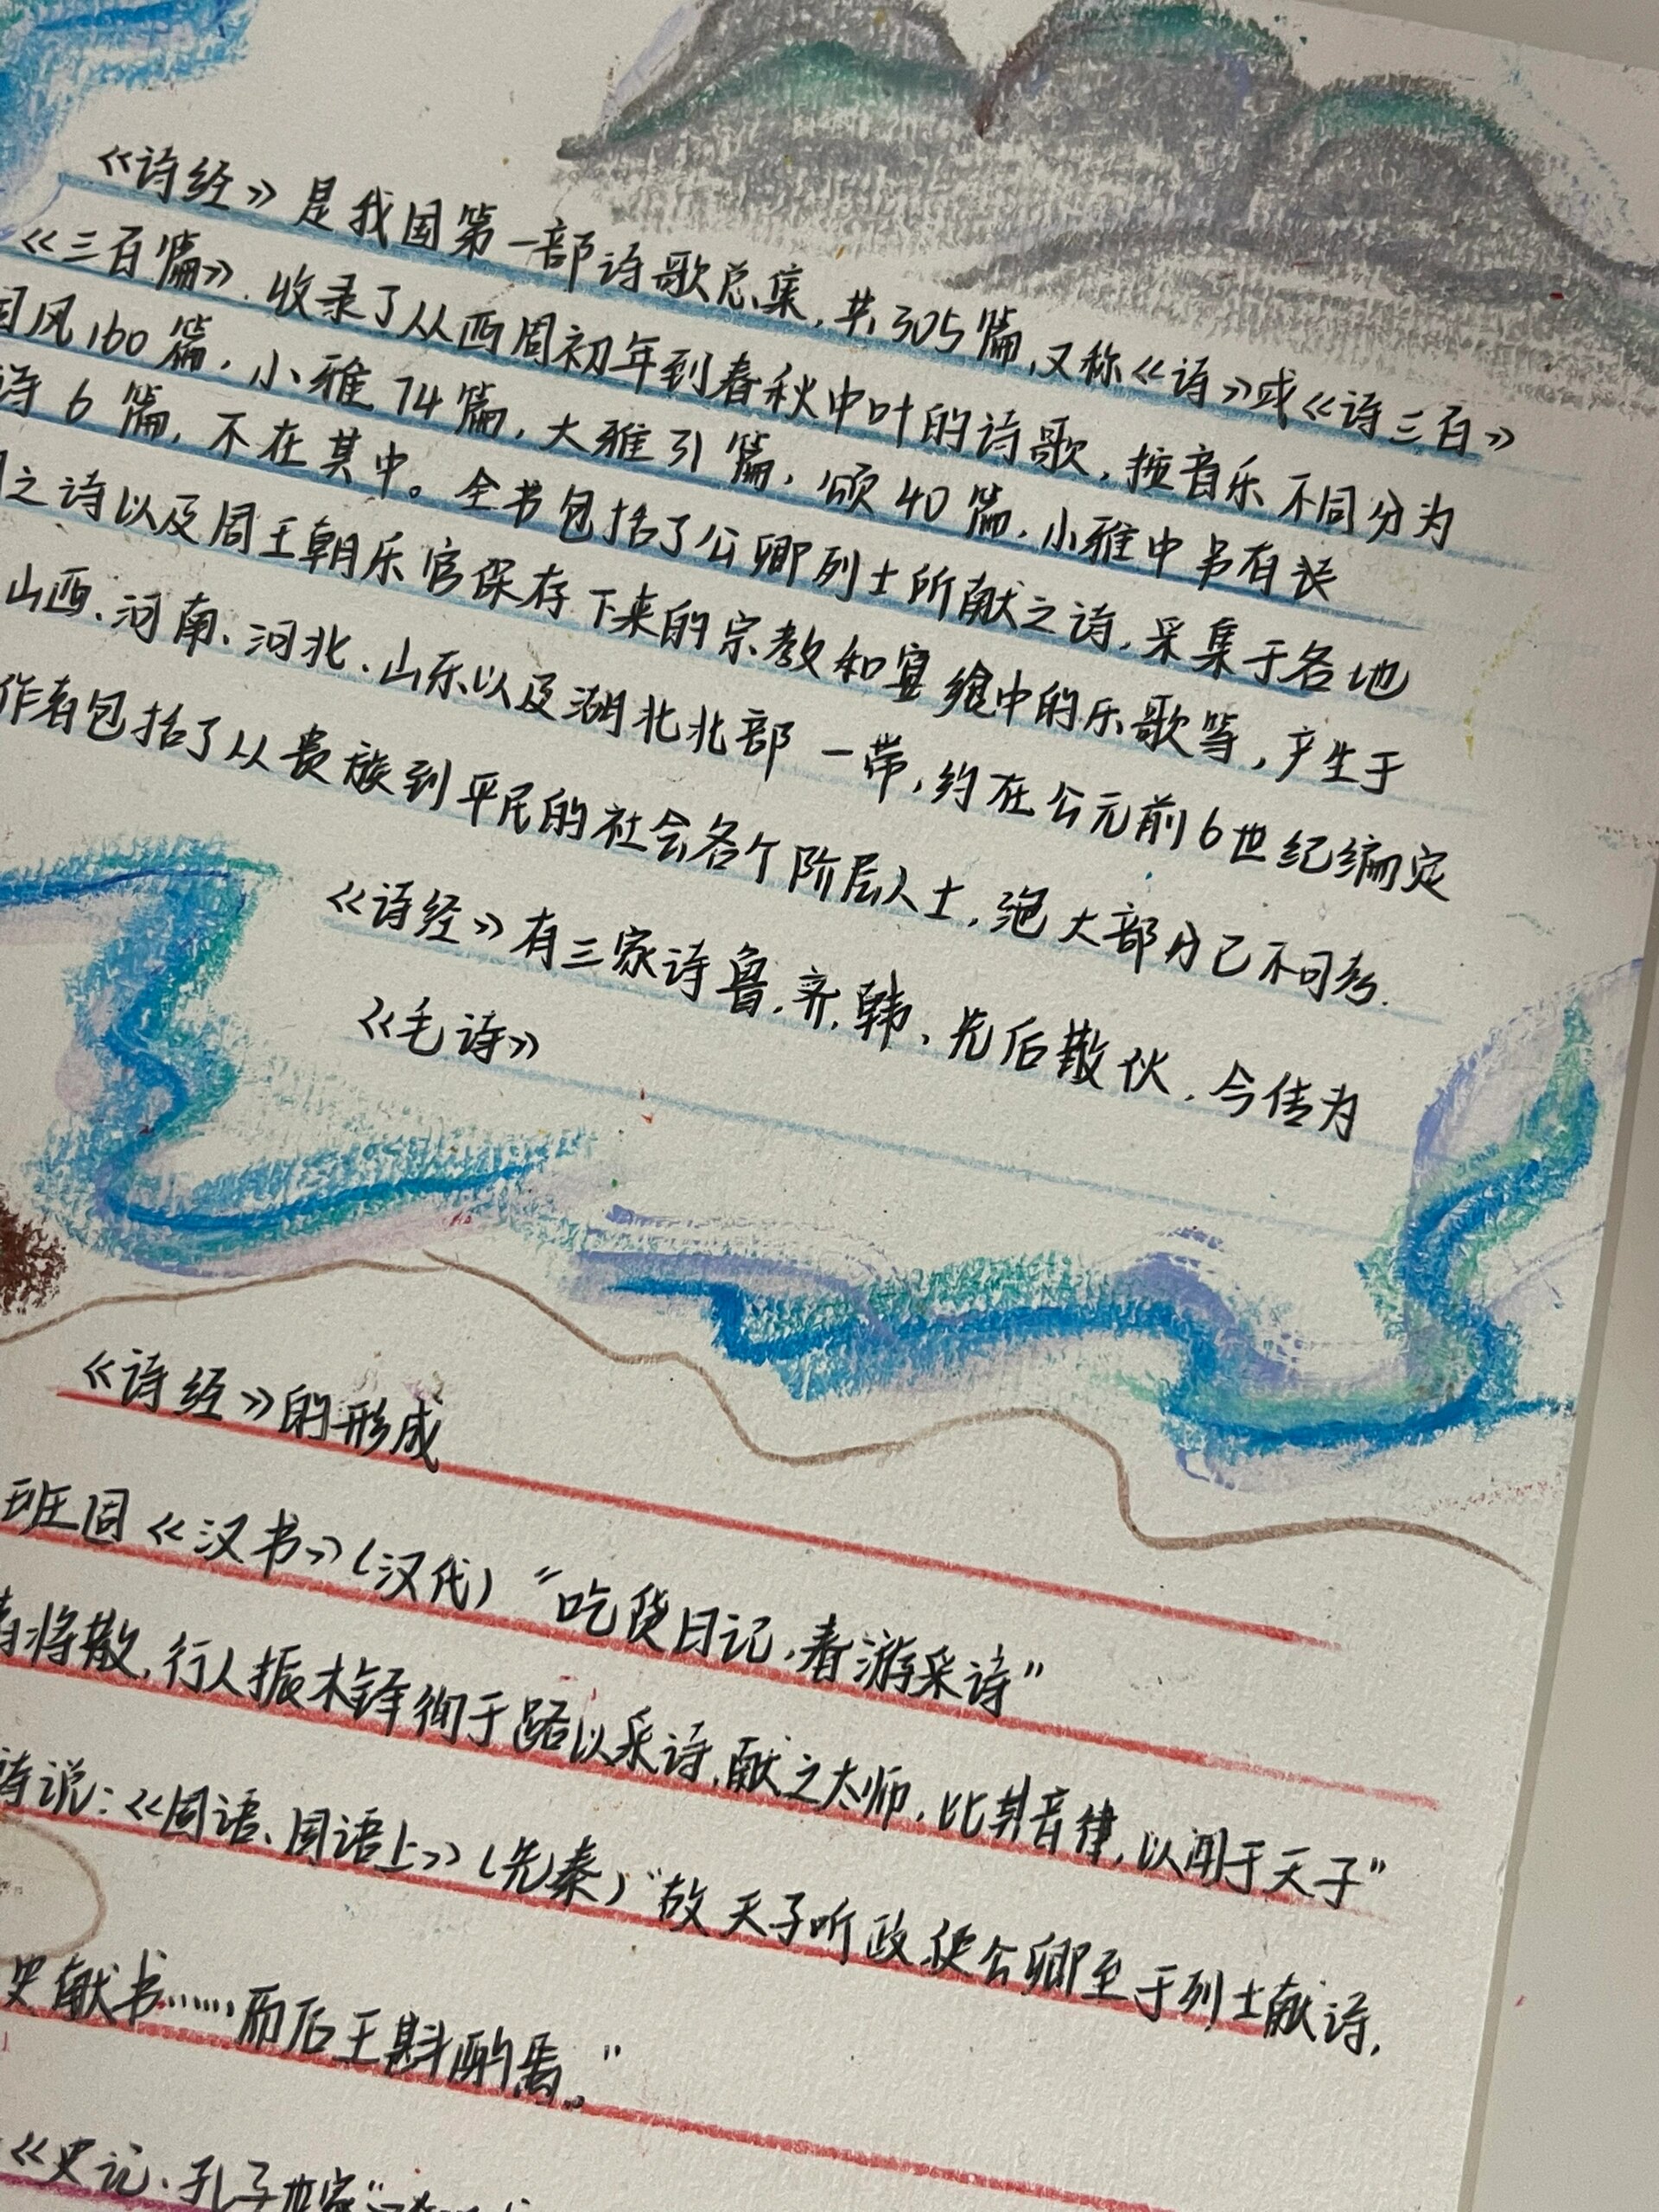 《诗经》是我国第一部诗歌总集，共305篇，又称《诗》或《诗三百》
《三百篇》．收录了从西周初年到春秋中叶的诗歌，按音乐不同分为
国风160篇，小雅74篇，大雅31篇，颂40篇，小雅中另有
诗6篇，不在其中。全书包括了公卿列士所献之诗，采集于各地
之诗以及周王朝乐官保存下来的宗教和宴飨中的乐歌等，产生于
山西、河南、河北、山东以及湖北北部一带，约在公元前6世纪编定
作者包括了从贵族到平民的社会各个阶层人士，绝大部分已不可考．
《诗经》有三家诗鲁、齐、韩、先后散佚．今传为
《毛诗》
《诗经》的形成
班固《汉书》(汉代)“吃货日记，春游采诗”
者将散，行人振木铎徇于路以采诗，献之太师，比其音律，以闻于天子”
诗说：《国语、国语上》(先秦)“故天子听政使公卿至于列士献诗，
史献书……而后王斟酌焉。”
《史记、孔子世家》